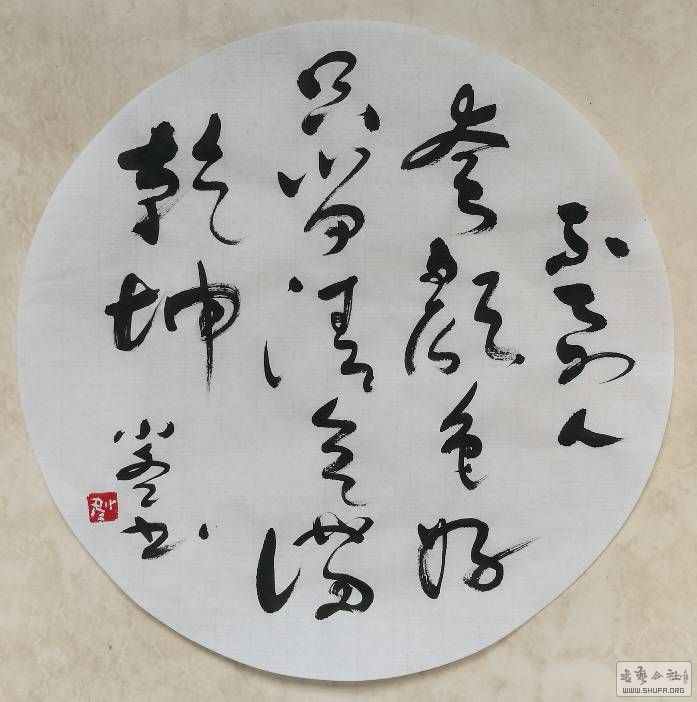 不要人
夸顏色好
只留清气滿
乾坤
書藝公社
WWW.SHUFA.ORG